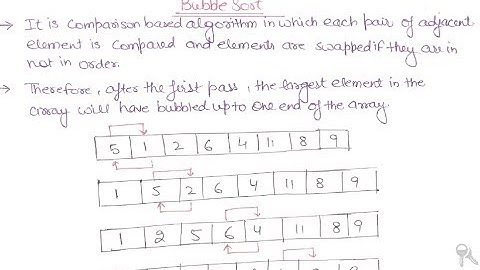 Bubble Sort
→ It is comparison based algorithm in which each pair of adjacent
element is compared and elements are swapped if they are in
not in order.
→ Therefore, after the first pass, the largest element in the
array will have bubbled up to one end of the array.
5 1 2 6 4 11 8 9
1 5 2 6 4 11 8 9
1 2 5 6 4 11 8 9